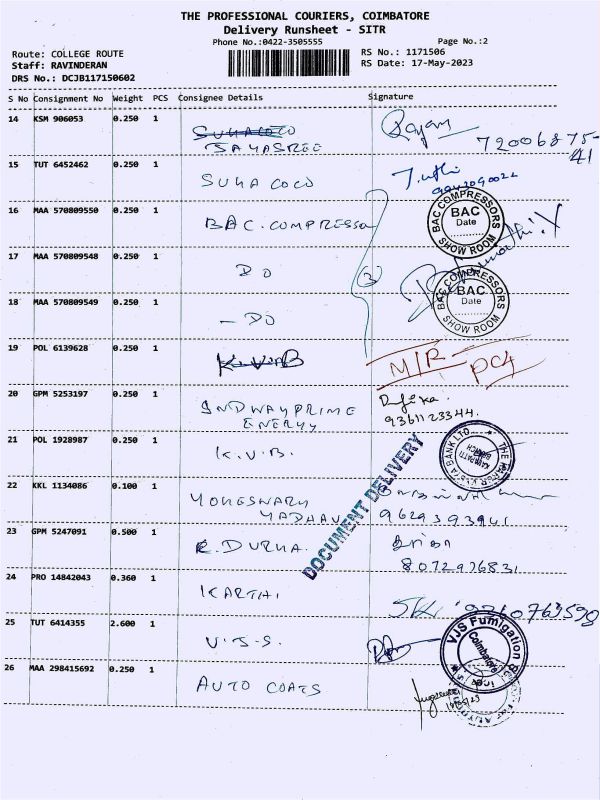 THE PROFESSIONAL COURIERS, COIMBATORE
Delivery Runsheet - SITR
Phone No.:0422-3505555 Page No.:2
Route: COLLEGE ROUTE RS No.: 1171506
Staff: RAVINDERAN RS Date: 17-May-2023
DRS No.: DCJB117150602
S No Consignment No Weight PCS Consignee Details Signature
14 KSM 906053 0.250 1 SUGA COCO
JAYASREE
72006875-
41
15 TUT 6452462 0.250 1 SUGA COCO
16 MAA 570809550 0.250 1 BAC. COMPRESSOR
BAC COMPRESSORS
BAC
Date
SHOW ROOM
17 MAA 570809548 0.250 1 DO
3
18 MAA 570809549 0.250 1 - DO
BAC COMPRESSORS
BAC
Date
SHOW ROOM
19 POL 6139628 0.250 1 K.V.B
20 GPM 5253197 0.250 1 SNDWAYPRIME
ENERGY
9361123344.
21 POL 1928987 0.250 1 K.V.B.
DOCUMENT DELIVERY
22 KKL 1134086 0.100 1 YOGESWARY
MADHAV
9629393941
23 GPM 5247091 0.500 1 R. DURGA.
8072976831
24 PRO 14842043 0.360 1 KARTHI
25 TUT 6414355 2.600 1 V.J.S.
VJS Fumigation
Coimbatore
26 MAA 298415692 0.250 1 AUTO COATS